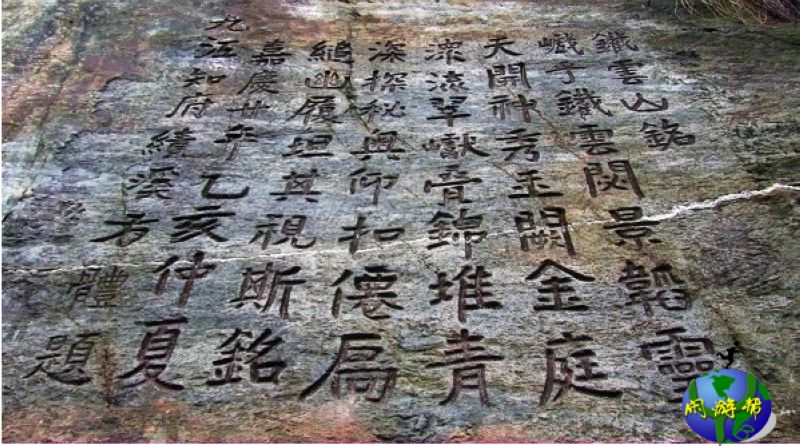 鐵雲山銘
于鐵雲閟景韜靈
天開神秀玉闕金庭
潨流翠錦堆青
深探秘奧仰扣僊扃
縋幽履坦其視斯銘
嘉慶廿年乙亥仲夏
九江知府績溪方體題
闲游帮